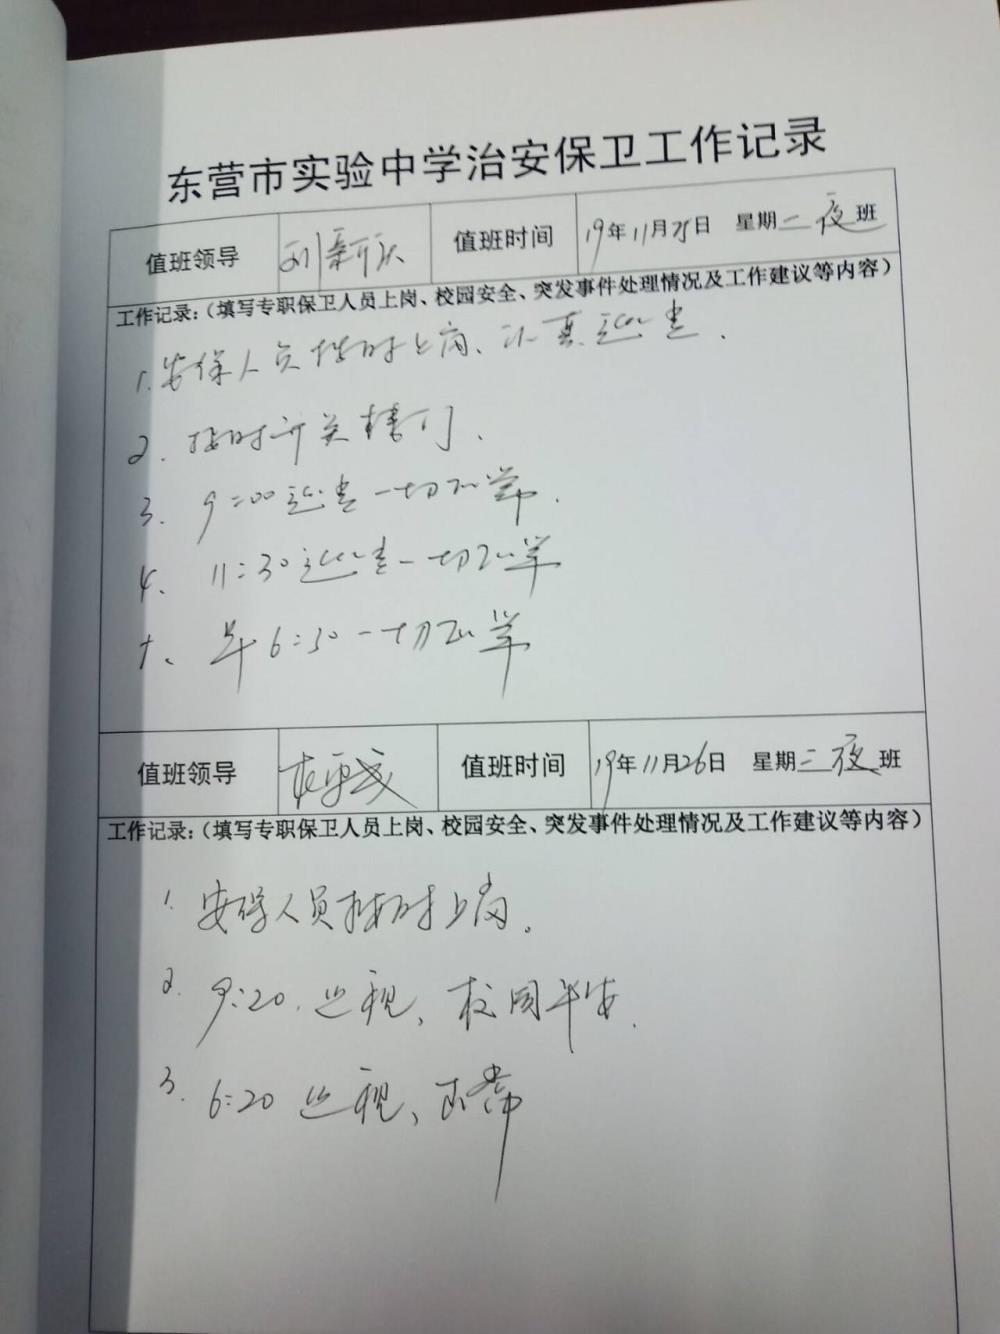 东营市实验中学治安保卫工作记录
值班领导 刘新庆 值班时间 19年11月25日 星期二夜班
工作记录：（填写专职保卫人员上岗、校园安全、突发事件处理情况及工作建议等内容）
1. 安保人员按时上岗、认真巡查.
2. 按时开关楼门、
3. 9:00巡查一切正常.
4、 11:30巡查一切正常
十、 早6:30一切正常
值班领导 值班时间 19年11月26日 星期二夜班
工作记录：（填写专职保卫人员上岗、校园安全、突发事件处理情况及工作建议等内容）
1. 安保人员按时上岗。
2. 9:20. 巡视、校园平安.
3. 6:20 巡视、正常